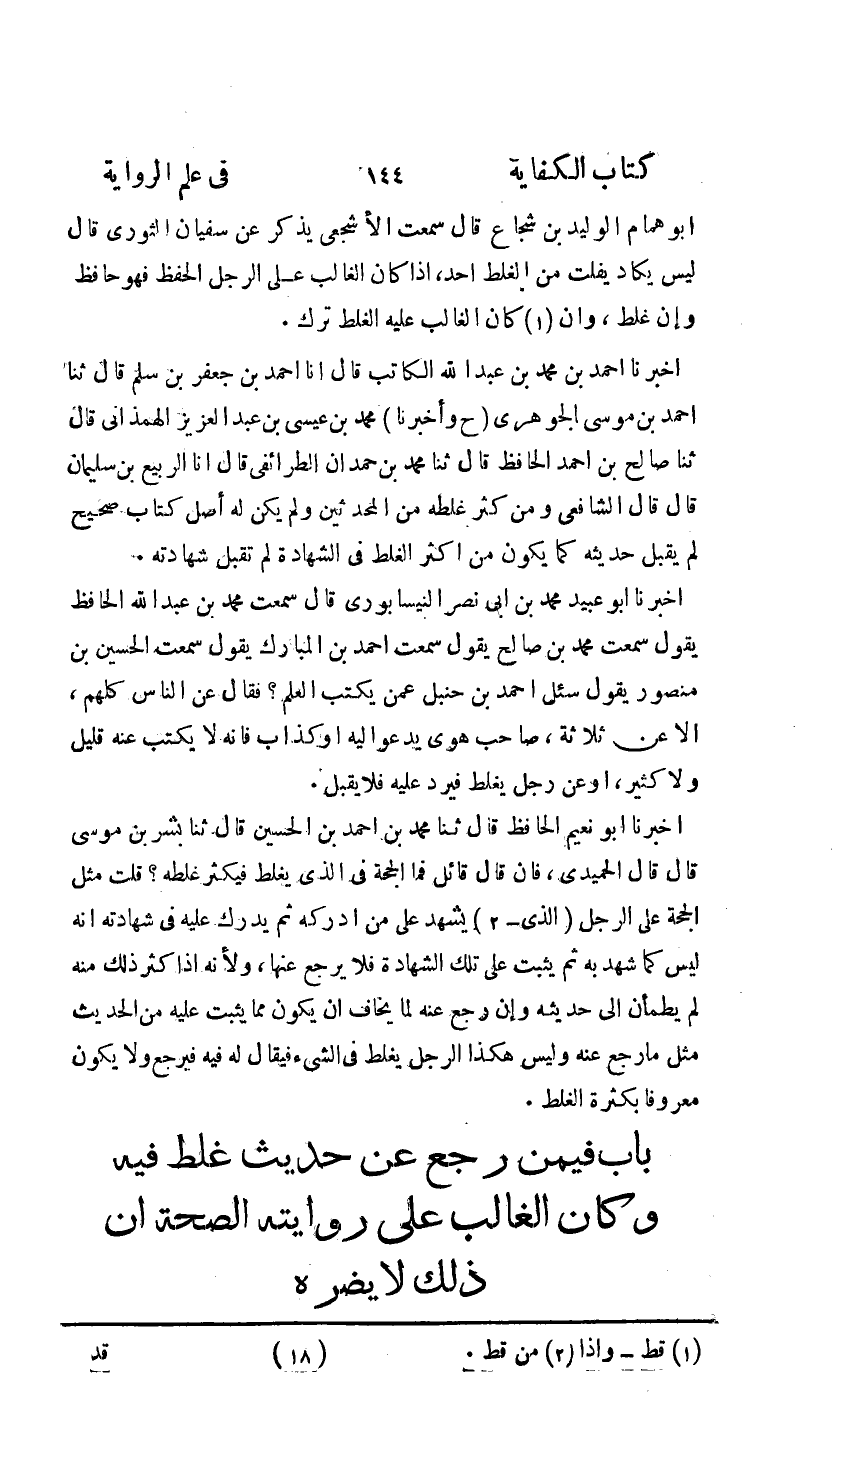 كتاب الكفاية ١٤٤ فى علم الرواية
ابوهمام الوليد بن شجاع قال سمعت الأشجعى يذكر عن سفيان الثورى قال
ليس يكاد يفلت من الغلط احد، اذا كان الغالب على الرجل الحفظ فهو حافظ
وإن غلط ، وان (١) كان الغالب عليه الغلط ترك .
اخبرنا احمد بن محمد بن عبد الله الكاتب قال انا احمد بن جعفر بن سلم قال ثنا
احمد بن موسى الجوهرى (ح وأخبرنا) محمد بن عيسى بن عبد العزيز الهمذانى قال
ثنا صالح بن احمد الحافظ قال ثنا محمد بن حمدان الطرائفى قال انا الربيع بن سليمان
قال قال الشافعى ومن كثر غلطه من المحدثين ولم يكن له أصل كتاب صحيح
لم يقبل حديثه كما يكون من اكثر الغلط فى الشهادة لم تقبل شهادته .
اخبرنا ابو عبيد محمد بن ابى نصر النيسابورى قال سمعت محمد بن عبد الله الحافظ
يقول سمعت محمد بن صالح يقول سمعت احمد بن المبارك يقول سمعت الحسين بن
منصور يقول سئل احمد بن حنبل عمن يكتب العلم ؟ فقال عن الناس كلهم ،
الا عن ثلاثة ، صاحب هوى يدعو اليه او كذاب فانه لا يكتب عنه قليل
ولا كثير ، او عن رجل يغلط فيرد عليه فلا يقبل .
اخبرنا ابو نعيم الحافظ قال ثنا محمد بن احمد بن الحسين قال ثنا بشر بن موسى
قال قال الحميدى ، فان قال قائل فما الحجة فى الذى يغلط فيكثر غلطه ؟ قلت مثل
الحجة على الرجل (الذى - ٢) يشهد على من ادركه ثم يدرك عليه فى شهادته انه
ليس كما شهد به ثم يثبت على تلك الشهادة فلا يرجع عنها ، ولأنه اذا كثر ذلك منه
لم يطمأن الى حديثه وإن رجع عنه لما يخاف ان يكون مما يثبت عليه من الحديث
مثل ما رجع عنه وليس هكذا الرجل يغلط فى الشىء فيقال له فيه فيرجع ولا يكون
معروفا بكثرة الغلط .
باب فيمن رجع عن حديث غلط فيه
وكان الغالب على روايته الصحة ان
ذلك لا يضره
(١) قط - واذا (٢) من قط . (١٨) قد